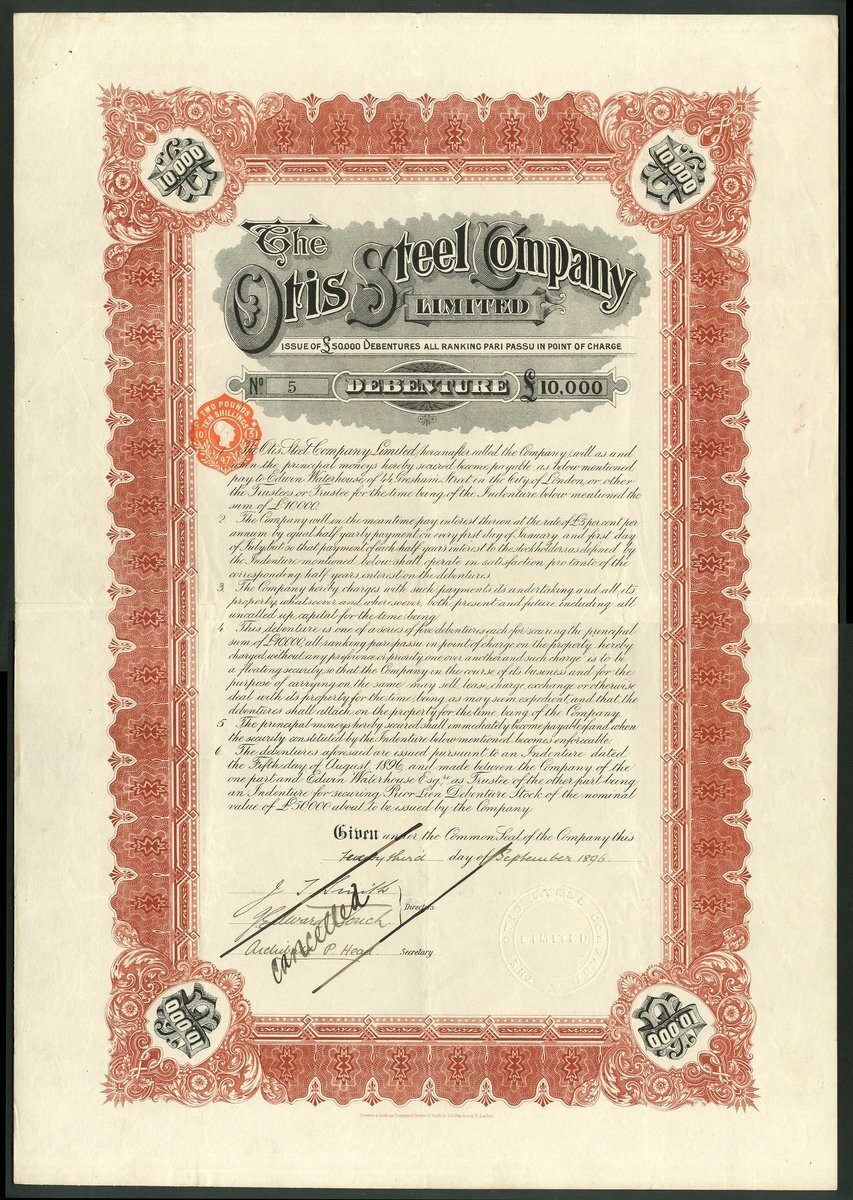 10.000
10.000
The
Otis Steel Company
LIMITED
ISSUE OF £50,000 DEBENTURES ALL RANKING PARI PASSU IN POINT OF CHARGE
No. 5 DEBENTURE £10,000
TWO POUNDS
TEN SHILLINGS
The Otis Steel Company Limited, (hereinafter called the Company) will as and
when the principal moneys hereby secured become payable as below mentioned
pay to Edwin Waterhouse, of 44 Gresham Street in the City of London, or other
the Trustees or Trustee for the time being of the Indenture below mentioned the
sum of £10,000.
2 The Company will in the meantime pay interest thereon at the rate of £5 per cent per
annum by equal half yearly payment on every first day of January and first day
of July but so that payment of each half years interest to the stockholders as defined by
the Indenture mentioned below shall operate in satisfaction pro tanto of the
corresponding half years interest on the debentures.
3 The Company hereby charges with such payments its undertaking and all its
property whatsoever and wheresoever both present and future including all
uncalled up capital for the time being.
4 This debenture is one of a series of five debentures each for securing the principal
sum of £10,000, all ranking pari passu in point of charge on the property hereby
charged without any preference or priority one over another and such charge is to be
a floating security so that the Company in the course of its business and for the
purpose of carrying on the same may sell, lease, charge, exchange or otherwise
deal with its property for the time being as may seem expedient and that the
debentures shall attach on the property for the time being of the Company.
5 The principal moneys hereby secured shall immediately become payable if and when
the security constituted by the Indenture below mentioned becomes enforceable.
6 The debentures aforesaid are issued pursuant to an Indenture dated
the Fifth day of August 1896, and made between the Company of the
one part and Edwin Waterhouse Esqre as Trustee of the other part being
an Indenture for securing Prior Lien Debenture Stock of the nominal
value of £50,000 about to be issued by the Company.
Given under the Common Seal of the Company this
twenty third day of September 1896.
J T Smith
J. Edward Couch
Directors
Archibald P. Head Secretary
cancelled
THE OTIS STEEL COMPANY
LIMITED
10.000
10.000